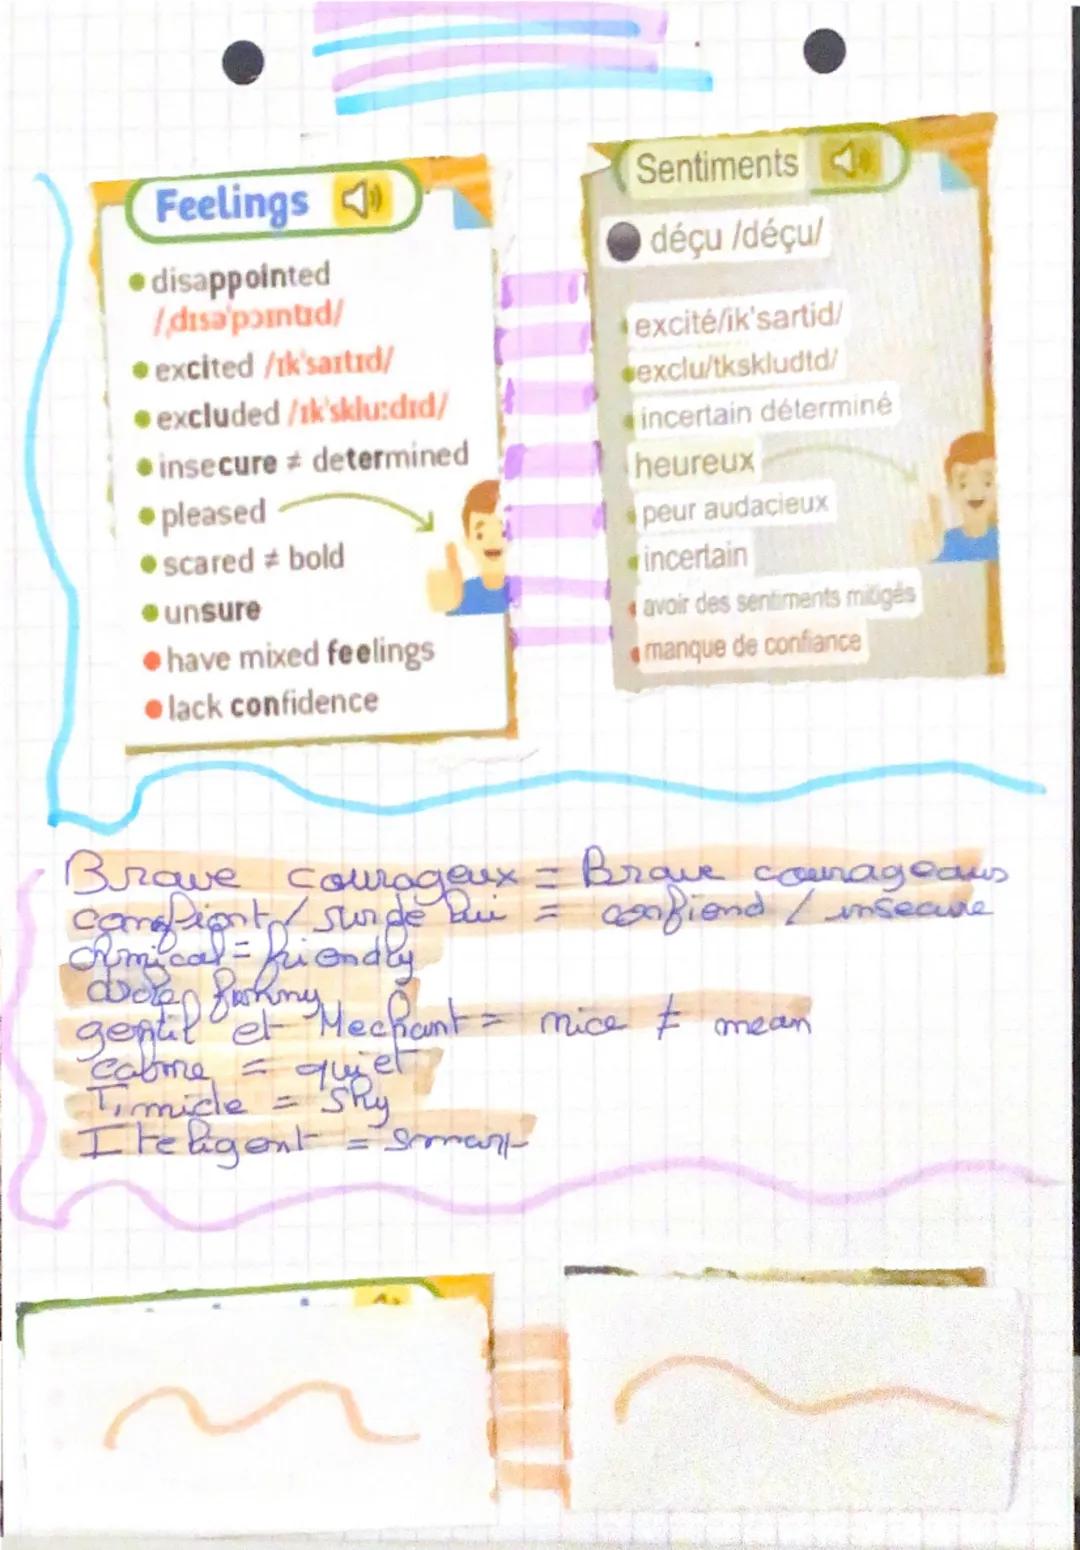 Feelings
disappointed
/ˌdɪsəˈpɔɪntɪd/
excited /ɪkˈsaɪtɪd/
excluded /ɪkˈskluːdɪd/
insecure ≠ determined
pleased
scared ≠ bold
unsure
have mixed feelings
lack confidence
Sentiments
déçu /déçu/
excité/ik'sartid/
exclu/tkskludtd/
incertain déterminé
heureux
peur audacieux
incertain
avoir des sentiments mitigés
manque de confiance
Brave courageux = Brave courageous
confiant / sur de lui = confiend / insecure
Amical = friendly
funny
gentil et Mechant = nice ≠ mean
calme = quiet
Timide = shy
Iteligent = smart